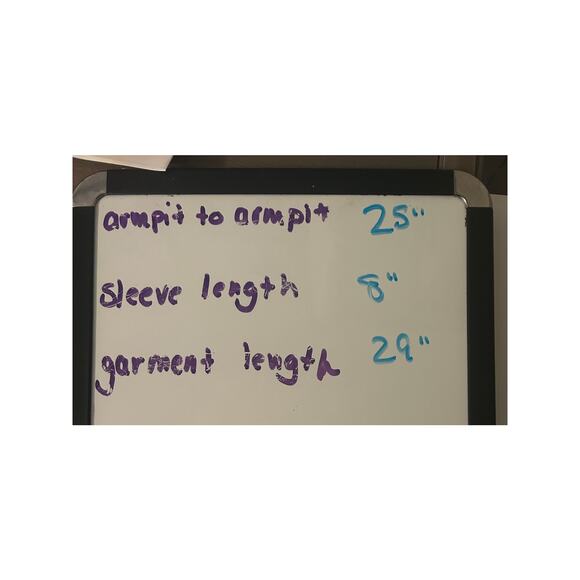 armpit to armpit 25"
sleeve length 8"
garment length 29"